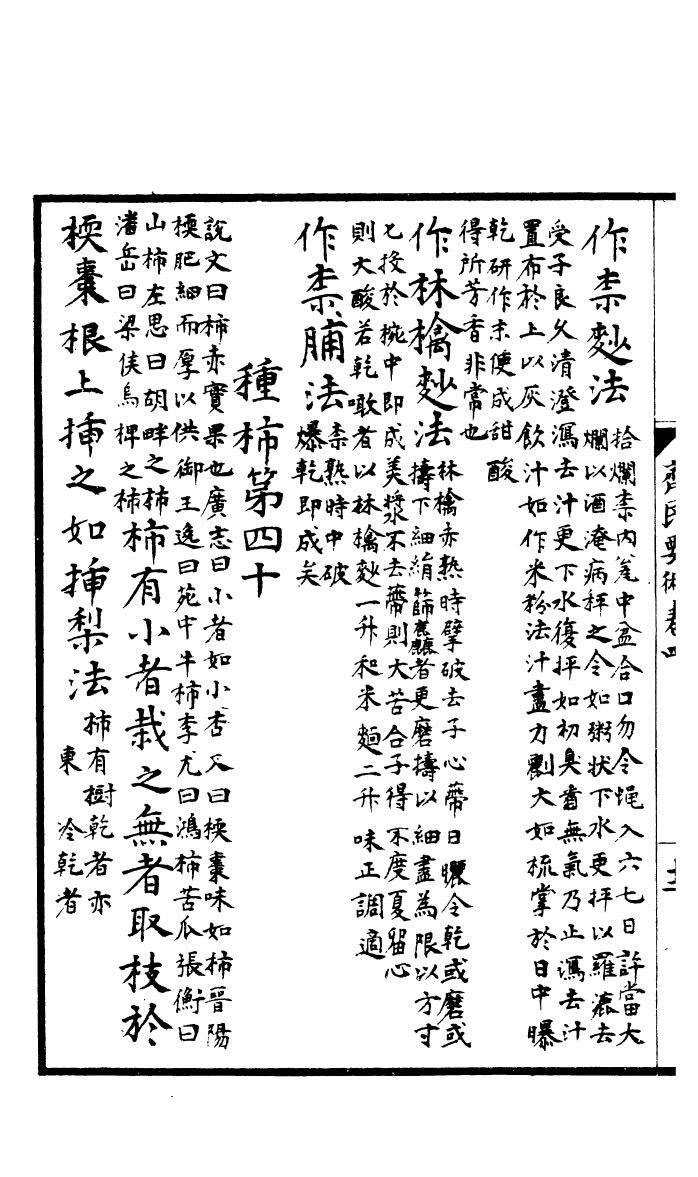 齊民要術卷四
十三
作柰麨法
拾爛柰內瓮中盆合口勿令蝇入六七日許當大
爛以酒淹病抨之令如粥狀下水更抨以羅漉去
受子良久清澄瀉去汁更下水復抨如初臭看無氣乃止瀉去汁
置布於上以灰飲汁如作米粉法汁盡刀劙大如梳掌於日中曝
乾研作末便成甜酸
得所芳香非常也
作林檎麨法
林檎赤熟時擘破去子心蔕日曬令乾或磨或
擣下細絹篩麁者更磨擣以細盡為限以方寸
匕投於椀中即成美漿不去蔕則大苦合子得不度夏留心
則大酸若乾噉者以林檎麨一升和米麵二升味正調適
作柰脯法
柰熟時中破
爆乾即成矣
種柿第四十
說文曰柿赤實果也廣志曰小者如小杏又曰㮕棗味如柿晉陽
㮕肥細而厚以供御王逸曰苑中牛柿李尤曰鴻柿苦瓜張衡曰
山柿左思曰胡畔之柿
潘岳曰梁侯烏椑之柿
柿有小者栽之無者取枝於
㮕棗根上插之如插梨法
柿有樹乾者亦
東 冷乾者